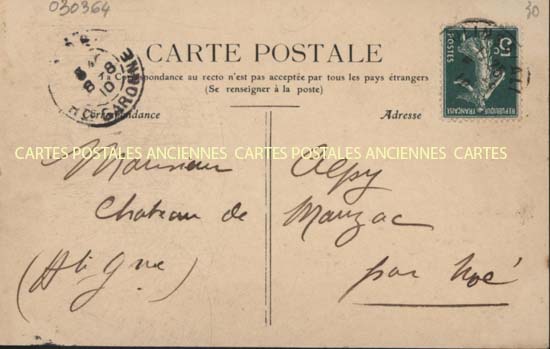 030364
30
CARTE POSTALE
La Correspondance au recto n'est pas acceptée par tous les pays étrangers
(Se renseigner à la poste)
Correspondance
Adresse
5c
POSTES
REPUBLIQUE FRANÇAISE
8 - 8
10
GARONNE
CARTES POSTALES ANCIENNES CARTES POSTALES ANCIENNES CARTES
Monsieur Alpy
Chateau de Mauzac
(Hte Gne) par Noé